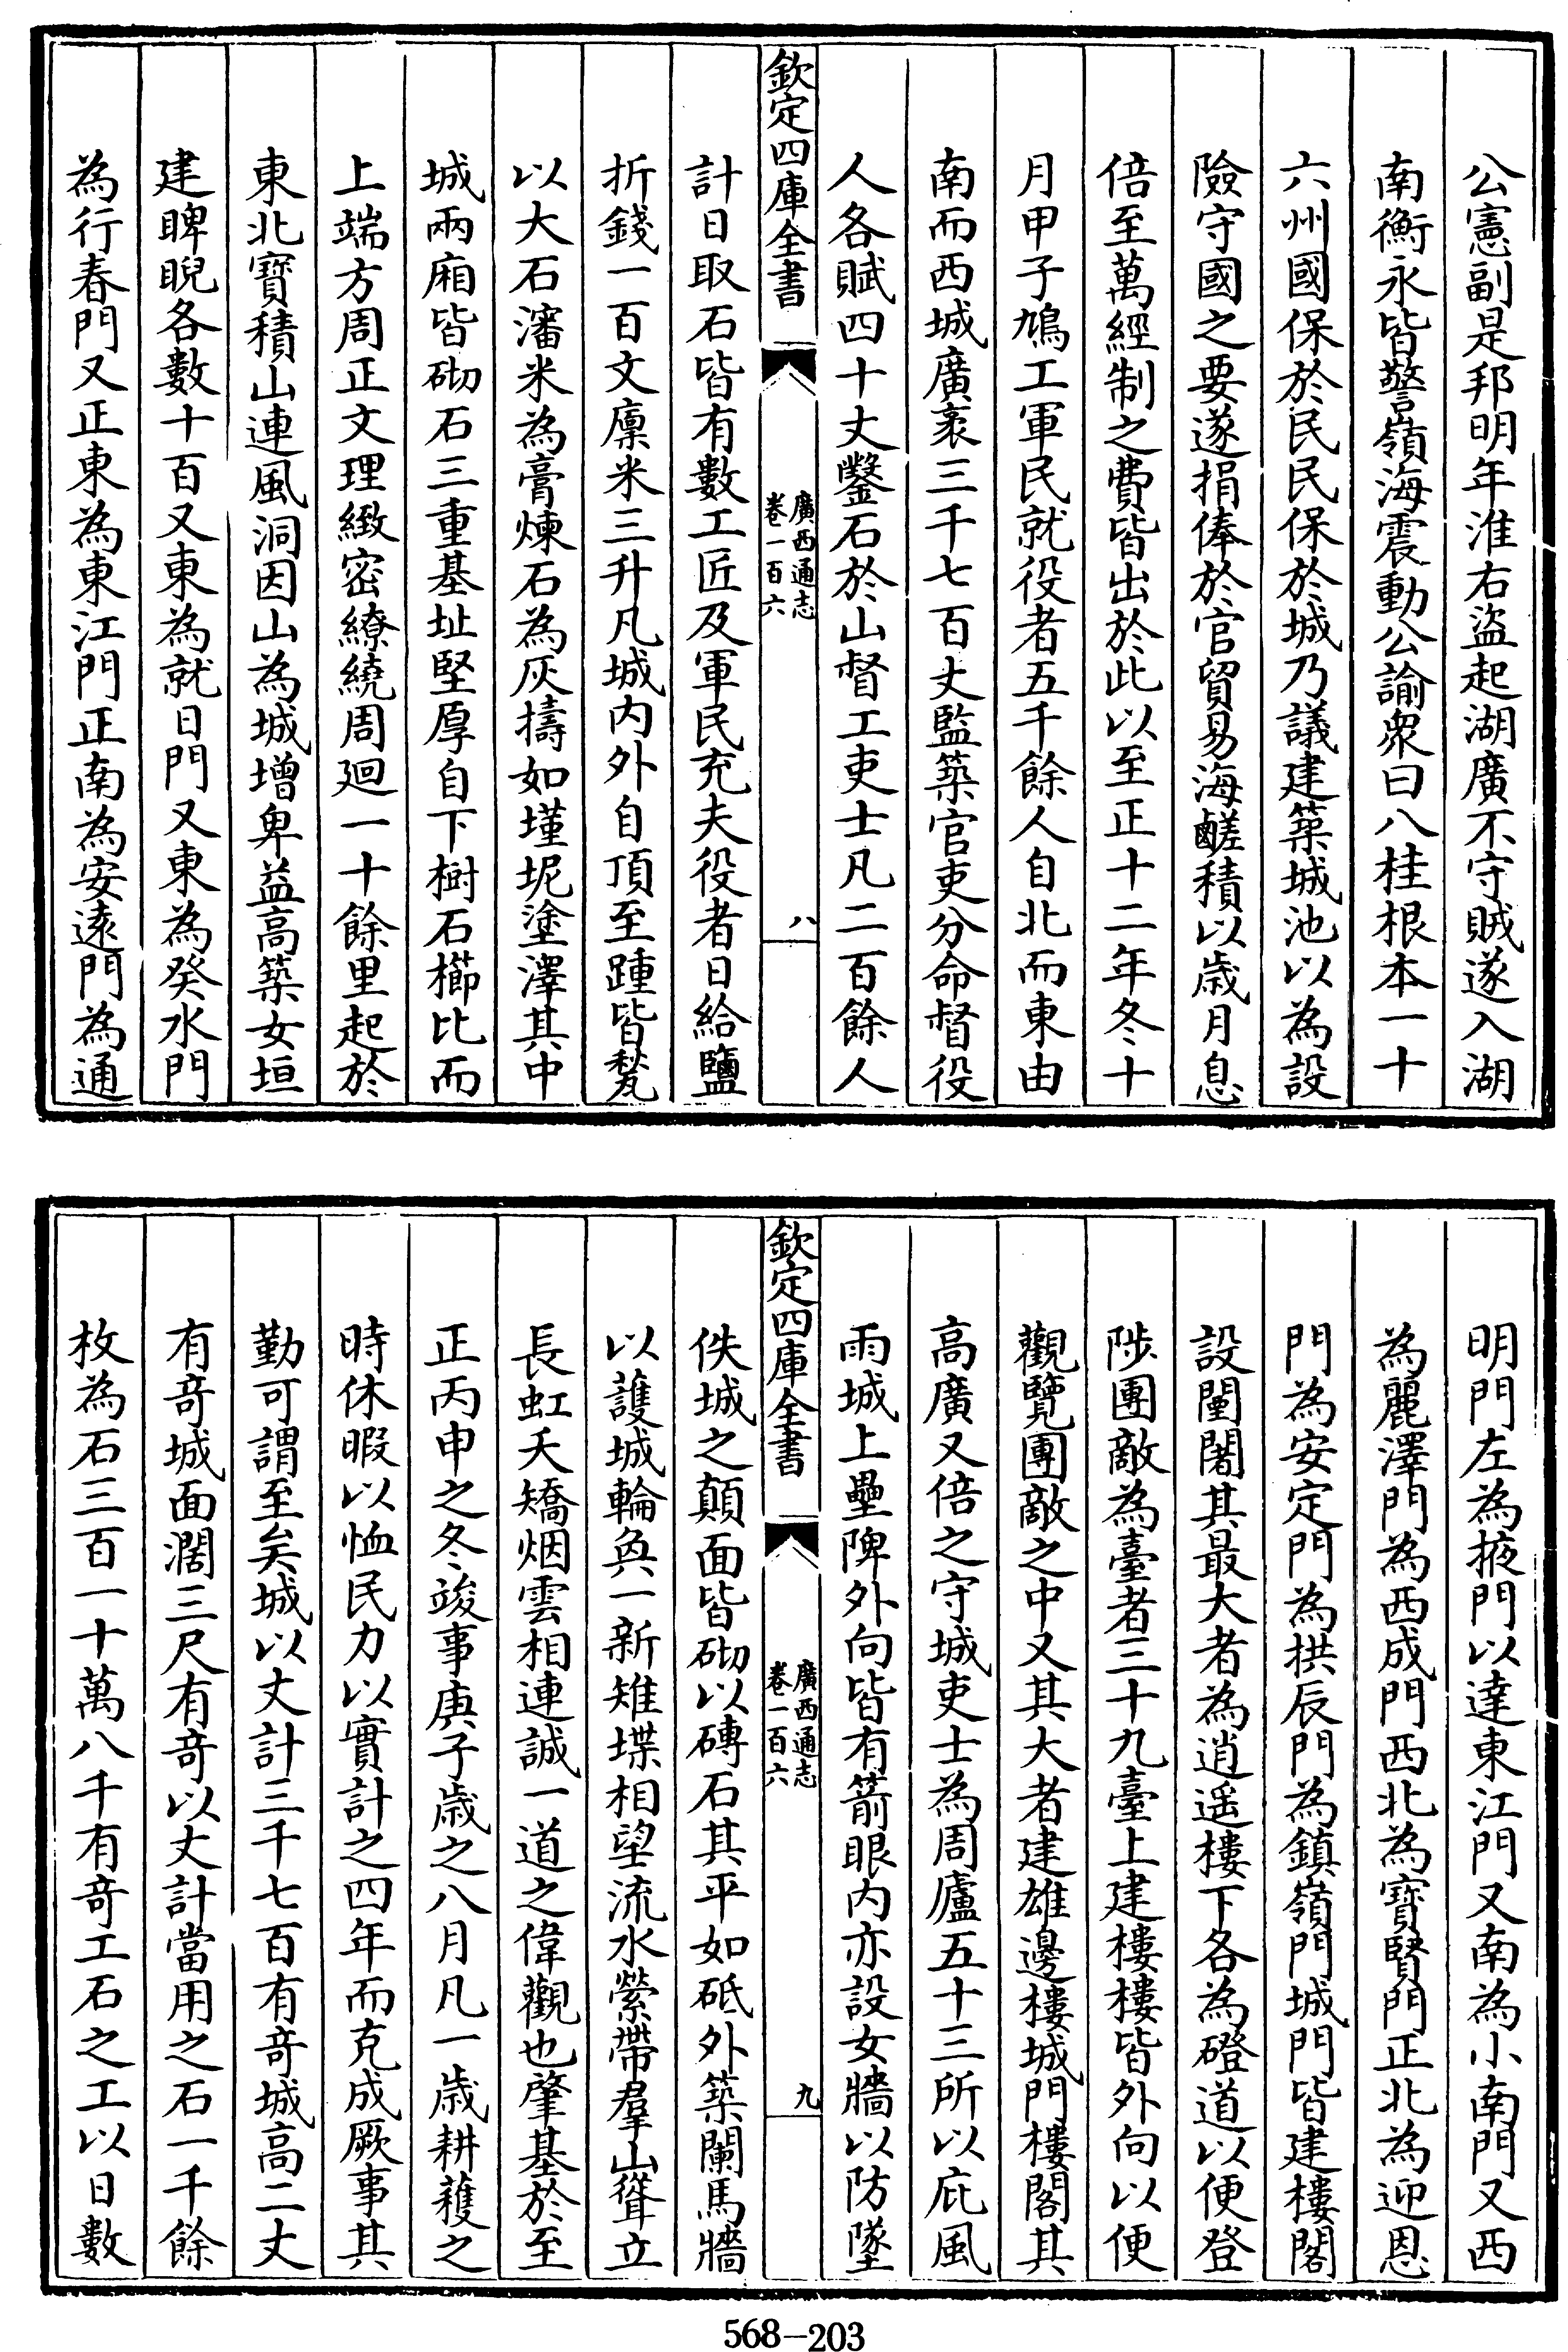 公憲副是邦明年淮右盜起湖廣不守賊遂入湖
南衡永皆警嶺海震動公諭衆曰八桂根本一十
六州國保於民民保於城乃議建築城池以為設
險守國之要遂捐俸於官貿易海鹺積以歲月息
倍至萬經制之費皆出於此以至正十二年冬十
月甲子鳩工軍民就役者五千餘人自北而東由
南而西城廣袤三千七百丈監築官吏分命督役
人各賦四十丈鑿石於山督工吏士凡二百餘人
欽定四庫全書
廣西通志
卷一百六
八
計日取石皆有數工匠及軍民充夫役者日給鹽
折錢一百文廪米三升凡城内外自頂至踵皆甃
以大石瀋米為膏煉石為灰擣如墐坭塗澤其中
城兩廂皆砌石三重基址堅厚自下樹石櫛比而
上端方周正文理緻密繚繞周廻一十餘里起於
東北寶積山連風洞因山為城增卑益高築女垣
建睥睨各數十百又東為就日門又東為癸水門
為行春門又正東為東江門正南為安遠門為通
明門左為掖門以達東江門又南為小南門又西
為麗澤門為西成門西北為寶賢門正北為迎恩
門為安定門為拱辰門為鎮嶺門城門皆建樓閣
設闉闍其最大者為逍遥樓下各為磴道以便登
陟團敵為臺者三十九臺上建樓樓皆外向以便
觀覽團敵之中又其大者建雄邊樓城門樓閣其
高廣又倍之守城吏士為周廬五十三所以庇風
雨城上壘陴外向皆有箭眼内亦設女牆以防墜
欽定四庫全書
廣西通志
卷一百六
九
佚城之顛面皆砌以磚石其平如砥外築闌馬牆
以護城輪奐一新雉堞相望流水縈帶羣山聳立
長虹夭矯烟雲相連誠一道之偉觀也肇基於至
正丙申之冬竣事庚子歲之八月凡一歲耕穫之
時休暇以恤民力以實計之四年而克成厥事其
勤可謂至矣城以丈計三千七百有奇城高二丈
有竒城面濶三尺有竒以丈計當用之石一千餘
枚為石三百一十萬八千有竒工石之工以日數
568-203